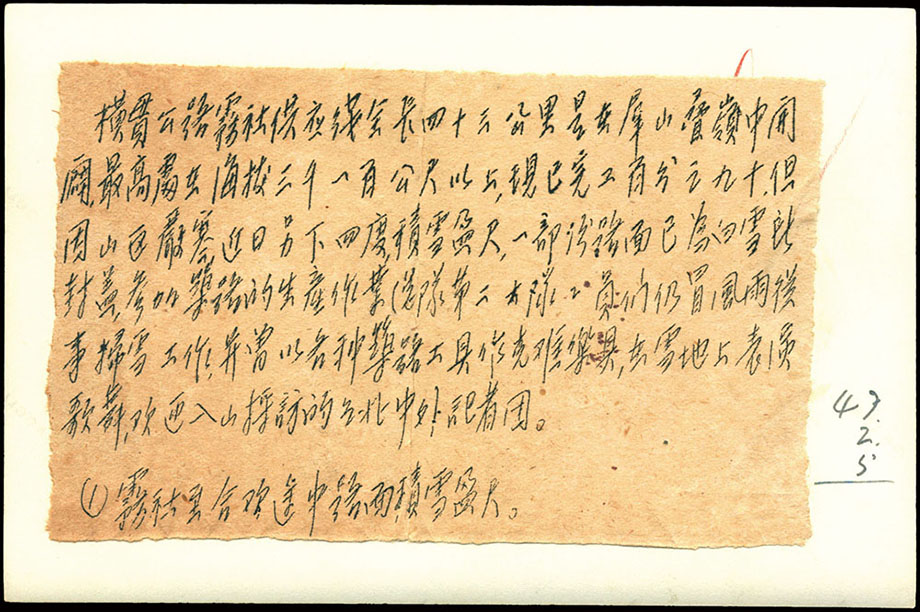 橫貫公路霧社供應綫全長四十三公里是在羣山疊嶺中開
闢,最高處在海拔三千一百公尺以上,現已完工百分之九十,但
因山區嚴寒近日另下四度,積雪盈尺,一部份路面已為白雪所
封蓋,參加築路的生產作業總隊第二大隊工員們仍冒風雨從
事掃雪工作,并曾以各种築路工具作克难樂具,在雪地上表演
歌舞,欢迎入山採訪的台北中外記者团。
(1)霧社至合欢途中路面積雪盈尺。
43.
2.
5